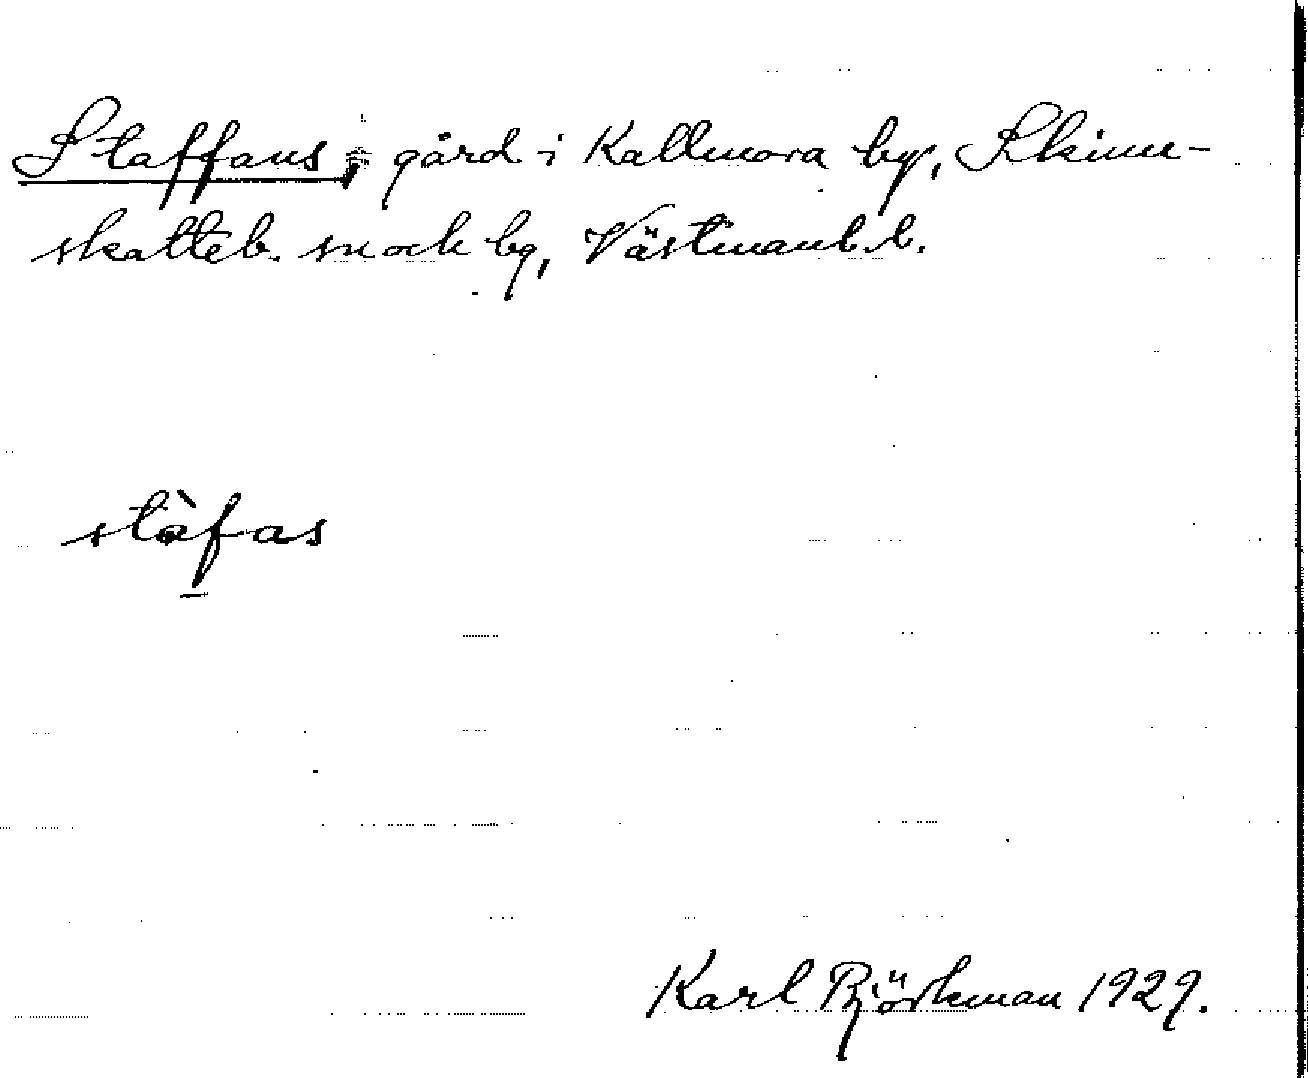 Staffans, gård i Kallmora by, Skinn-
skatteb. sn och by, Västmanl. l.
stàfas
Karl Björkman 1929.